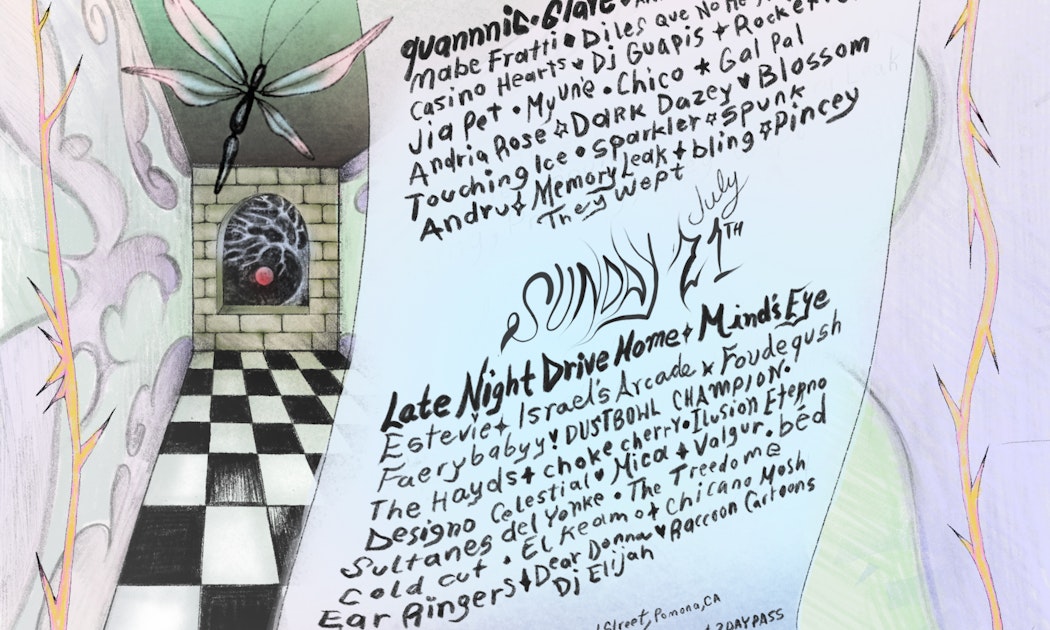 quannnic • Glare •
Mabe Fratti • Diles que No Me
Casino Hearts ★ Dj Guapis ✦
Jia Pet • Myuné • Chico ★ Gal Pal
Andria Rose ☆ DaRK Dazey ♥ Blossom
Touching Ice • Sparkler ☆ Spunk
Andru ✦ Memory Leak ✦ bling ☆ Pincey
They Wept
SUNDAY July 21TH
Late Night Drive Home ✦ Mind's Eye
Estevie ✦ Israel's Arcade ★ Foudeqush
Faerybabyy ♥ DUSTBOWL CHAMPION •
The Hayds ✦ choke cherry • Ilusion Eterno
Designo Celestial ♥ Mica ✦ Valgur • béd
Sultanes del Yonke • The Treedome
Cold cut • El Keamo ✦ Chicano Mosh
Ear Ringers ✦ Dear Donna ♥ Raccoon Cartoons
Dj Elijah
Street, Pomona, CA
2 DAY PASS